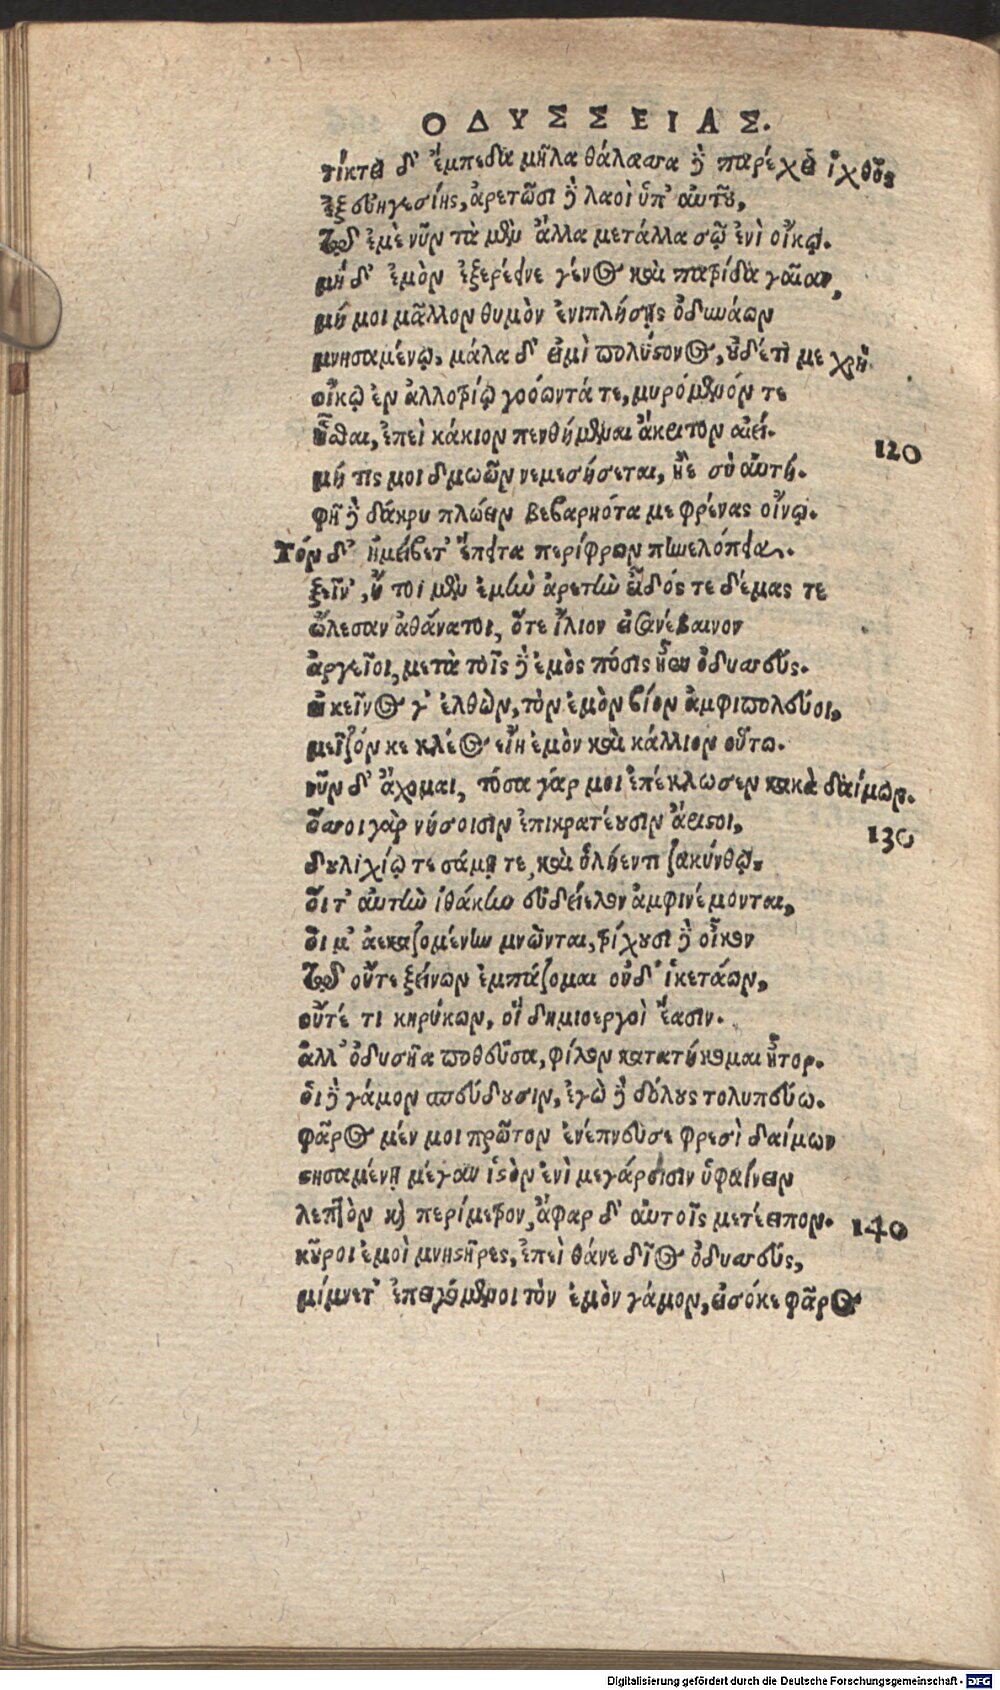 ΟΔΥΣΣΕΙΑΣ.
τίκτει δ' ἔμπεδα μῆλα θάλασσα δὲ παρέχει ἰχθῦς
ἐξ εὐηγεσίης, ἀρετῶσι δὲ λαοὶ ὑπ' αὐτοῦ,
τῷ δ' ἐμὲ νῦν τὰ μὲν ἄλλα μετάλλα σῷ ἐνὶ οἴκῳ.
μὴ δ' ἐμὸν ἐξερέεινε γένος καὶ πατρίδα γαῖαν,
μή μοι μᾶλλον θυμὸν ἐνιπλήσῃς ὀδυνάων
μνησαμένῳ, μάλα δ' εἰμὶ πολύστονος, οὐδέ τί με χρὴ
οἴκῳ ἐν ἀλλοτρίῳ γοόωντά τε, μυρόμενόν τε
ἧσθαι, ἐπεὶ κάκιον πενθήμεναι ἄκριτον αἰεί.
120
μή τις μοι δμωῶν νεμεσήσεται, ἠὲ σὺ αὐτή.
φῆ δὲ δάκρυ πλώειν βεβαρηότα με φρένας οἴνῳ.
Τόν δ' ἠμείβετ' ἔπειτα περίφρων πηνελόπεια.
ξεῖν', ἤ τοι μὲν ἐμὴν ἀρετὴν εἶδός τε δέμας τε
ὤλεσαν ἀθάνατοι, ὅτε ἴλιον εἰσανέβαινον
ἀργεῖοι, μετὰ τοῖς δ' ἐμὸς πόσις ᾖεν ὀδυσσεύς.
εἰ κεῖνος γ' ἐλθὼν, τὸν ἐμὸν βίον ἀμφιπολεύοι,
μεῖζόν κε κλέος εἴη ἐμὸν καὶ κάλλιον οὕτω.
νῦν δ' ἄχομαι, τόσα γάρ μοι ἐπέκλωσεν κακὰ δαίμων.
ὅσσοι γὰρ νήσοισιν ἐπικρατέουσιν ἄριστοι,
130
δουλιχίῳ τε σάμῃ τε, καὶ ὑλήεντι ζακύνθῳ,
οἵ τ' αὐτὴν ἰθάκην εὐδείελον ἀμφινέμονται,
οἵ μ' ἀεκαζομένην μνῶνται, τρίχουσι δὲ οἶκον
τῷ δ' οὔτε ξείνων ἐμπάζομαι οὐδ' ἱκετάων,
οὔτέ τι κηρύκων, οἳ δημιοεργοὶ ἔασιν.
ἀλλ' ὀδυσῆα ποθεῦσα, φίλον κατατήκομαι ἦτορ.
οἱ δὲ γάμον σπεύδουσιν, ἐγὼ δὲ δόλους τολυπεύω.
φᾶρος μέν μοι πρῶτον ἐνέπνευσε φρεσὶ δαίμων
στησαμένῃ μέγαν ἱστὸν ἐνὶ μεγάροισιν ὑφαίνειν
λεπτὸν καὶ περίμετρον, ἄφαρ δ' αὐτοῖς μετέειπον.
140
κοῦροι ἐμοὶ μνηστῆρες, ἐπεὶ θάνε δῖος ὀδυσσεύς,
μίμνετ' ἐπειγόμενοι τὸν ἐμὸν γάμον, εἰσόκε φᾶρος
Digitalisierung gefördert durch die Deutsche Forschungsgemeinschaft - DFG